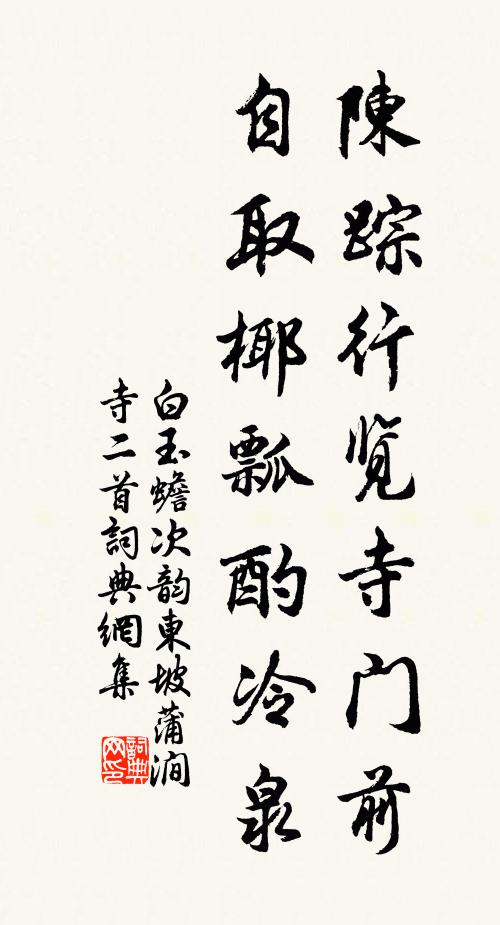 陳踪行览寺门前
自取椰瓢酌冷泉
白玉蟾次韵東坡蒲澗
寺二首詞典網集
詞典
网印